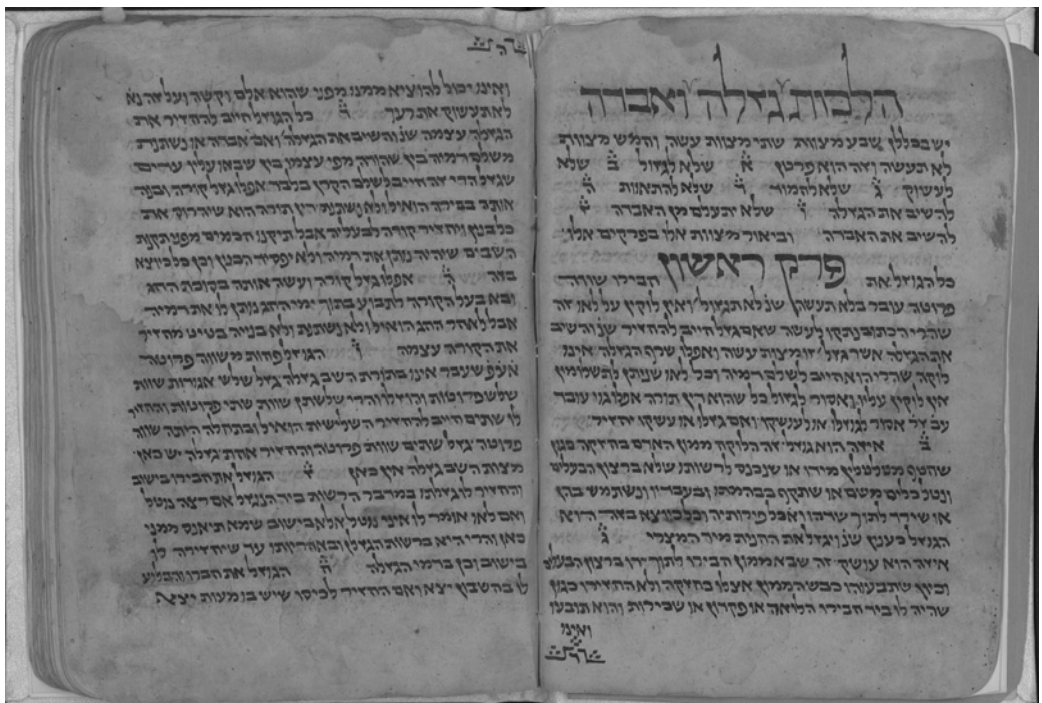 הלכות גזלה ואבדה
יש בכללן שבע מצוות שתי מצוות עשה וחמש מצוות
לא תעשה וזה הוא פרטן א שלא לגזול ב שלא
לעשוק ג שלא לחמוד ד שלא להתאוות ה
להשיב את הגזלה ו שלא יתעלם מן האבדה ז
להשיב את האבדה וביאור מצוות אלו בפרקים אלו
פרק ראשון
כל הגוזל את חבירו שווה
פרוטה עובר בלא תעשה שנ לא תגזול ואין לוקין על לאו זה
שהרי הכתוב נתקו לעשה שאם גזל חייב להחזיר שנ והשיב
את הגזלה אשר גזל זו מצות עשה ואפלו שרף הגזלה אינו
לוקה שהרי הוא חייב לשלם דמיה וכל לאו שניתן לתשלומין
אין לוקין עליו ואסור לגזול כל שהוא דין תורה אפלו גוי עובד
אסור לגוזלו או לעושקו ואם גזלו או עשקו יחזיר
ב איזה הוא גוזל זה הלוקח ממון האדם בחזקה כגון
שחטף מטלטלין מידו או שנכנס לרשותו שלא ברצון הבעלים
ונטל כלים משם או שתקף בבהמתו ובעבדיו ונשתמש בהן
או שירד לתוך שדהו ואכל פירותיה וכל כיוצא בזה הוא
הגוזל כענין שנ ויגזל את החנית מיד המצרי ג
איזה הוא עושק זה שבא ממון חבירו לתוך ידו ברצון הבעלים
וכיון שתבעוהו כבש הממון אצלו בחזקה ולא החזירו כגון
שהיה לו ביד חבירו הלואה או פקדון או שכירות והוא תובעו
ואינו
ואינו יכול להוציא ממנו מפני שהוא אלם וקשה ועל זה נא
לא תעשוק את רעך ד כל הגוזל חייב להחזיר את
הגזלה עצמה שנ והשיב את הגזלה ואם אבדה או נשתנת
משלם דמיה בין שהודה מפי עצמו בין שבאו עליו עדים
שגזל הרי זה חייב לשלם הקרן בלבד אפלו גזל קורה ובנה
אותה בבירה הואיל ולא נשתנת דין תורה הוא שיהרוס את
כל בנין ויחזיר קורה לבעליה אבל תיקנו חכמים מפני תקנת
השבים שיהיה נותן את דמיה ולא יפסיד הבנין וכן כל כיוצא
בזה ה אפלו גזל קורה ועשה אותה בסוכת החג
ובא בעל הקורה לתבוע בתוך ימי החג נותן לו את דמיה
אבל לאחר החג הואיל ולא נשתנת ולא בנייה בטיט מחזיר
את הקורה עצמה ו הגוזל פחות משווה פרוטה
אעפ שעבר אינו בתורת השב גזלה גזל שלש אגודות שוות
שלש פרוטות והוזלו והרי שלשתן שוות שתי פרוטות והחזיר
לו שתים חייב להחזיר השלישית הואיל ובתחלה היתה שווה
פרוטה גזל שתים שוות פרוטה והחזיר אחת גזלה יש כאן
מצות השב גזלה אין כאן ז הגוזל את חבירו בישוב
והחזיר לו גזלתו במדבר הרשות ביד הנגזל אם רצה נוטל
ואם לאו אומר לו איני נוטל אלא בישוב שמא תיאנס ממני
כאן והרי היא ברשות הגזלן ובאחריותו עד שיחזירה לו
בישוב וכן בדמי הגזלה ח הגוזל את חברו והבליע
לו בחשבון יצא ואם החזיר לכיסו שיש בו מעות יצא